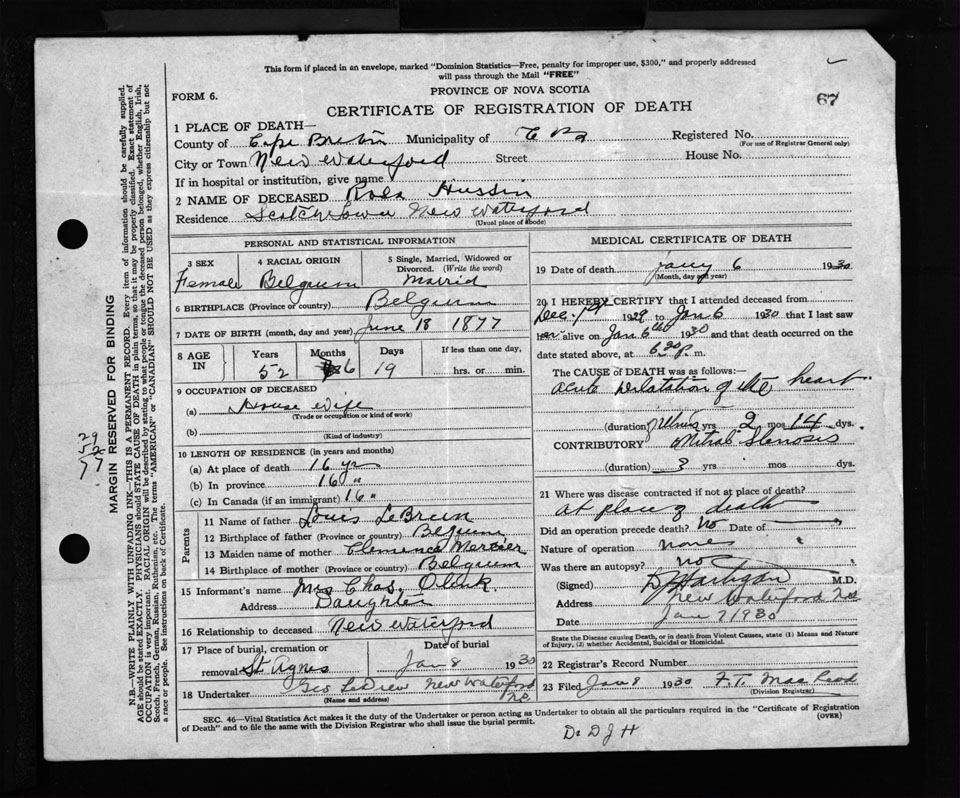 This form if placed in an envelope, marked "Dominion Statistics—Free, penalty for improper use, $300," and properly addressed
will pass through the Mail "FREE"
PROVINCE OF NOVA SCOTIA
FORM 6.
67
CERTIFICATE OF REGISTRATION OF DEATH
1 PLACE OF DEATH—
County of Cape Breton Municipality of C B Registered No.
(For use of Registrar General only)
City or Town New Waterford Street House No.
If in hospital or institution, give name
2 NAME OF DECEASED Rosa Hussin
Residence Scotchtown New Waterford
(Usual place of abode)
PERSONAL AND STATISTICAL INFORMATION
3 SEX 4 RACIAL ORIGIN 5 Single, Married, Widowed or
Divorced. (Write the word)
Female Belgium Married
6 BIRTHPLACE (Province or country) Belgium
7 DATE OF BIRTH (month, day and year) June 18 1877
8 AGE IN Years Months Days If less than one day,
52 6 19 hrs. or min.
9 OCCUPATION OF DECEASED
(a) House wife
(Trade or occupation or kind of work)
(b)
(Kind of industry)
10 LENGTH OF RESIDENCE (in years and months)
(a) At place of death 16 yr
(b) In province 16 "
(c) In Canada (if an immigrant) 16 "
Parents
11 Name of father Louis LeBrun
12 Birthplace of father (Province or country) Belgium
13 Maiden name of mother Clemence Mercier
14 Birthplace of mother (Province or country) Belgium
15 Informant's name Mrs Chas.
Address Daughter
16 Relationship to deceased New Waterford
17 Place of burial, cremation or Date of burial
removal St Agnes Jan 8 1930
18 Undertaker Geo LeDrew New Waterford
N.S.
(Name and address)
MEDICAL CERTIFICATE OF DEATH
19 Date of death Jany 6 1930
(Month, day and year)
20 I HEREBY CERTIFY that I attended deceased from
Dec. 1st 1929 to Jan 6 1930 that I last saw
her alive on Jan 6th 1930 and that death occurred on the
date stated above, at 6.30 P. m.
The CAUSE of DEATH was as follows:—
acute Dilatation of the heart
(duration) yrs 2 mos 14 dys.
CONTRIBUTORY Mitral Stenosis
(duration) 3 yrs mos dys.
21 Where was disease contracted if not at place of death?
At place of death
Did an operation precede death? No Date of
Nature of operation None
Was there an autopsy? No
(Signed) D J Hartigan M.D.
Address New Waterford NS
Date Jan 7 1930
State the Disease causing Death, or in death from Violent Causes, state (1) Means and Nature
of Injury, (2) whether Accidental, Suicidal or Homicidal.
22 Registrar's Record Number
23 Filed Jan 8 1930 F. T. MacLeod
(Division Registrar)
SEC. 46—Vital Statistics Act makes it the duty of the Undertaker or person acting as Undertaker to obtain all the particulars required in the "Certificate of Registration
of Death" and to file the same with the Division Registrar who shall issue the burial permit. (OVER)
Dr D J H
29
52
77
MARGIN RESERVED FOR BINDING
N.B.—WRITE PLAINLY WITH UNFADING INK—THIS IS A PERMANENT RECORD. Every item of information should be carefully supplied.
AGE should be stated EXACTLY. PHYSICIANS should STATE CAUSE OF DEATH in plain terms, so that it may be properly classified. Exact statement of
OCCUPATION is very important. RACIAL ORIGIN will be described by stating to what people or tongue the deceased person belonged, whether English, Irish,
Scotch, French, German, Russian, Ruthenian, etc. The terms "AMERICAN" or "CANADIAN" SHOULD NOT BE USED as they express citizenship but not
a race or people. See instructions on back of Certificate.